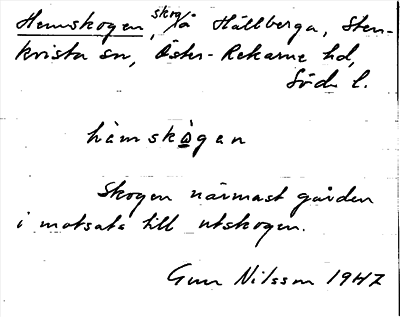 Hemskogen, skog på Hällberga, Sten-
kvista sn, Öster-Rekarne hd,
Söd. l.
hèmskògan
Skogen närmast gården
i motsats till utskogen.
Gun Nilsson 1947